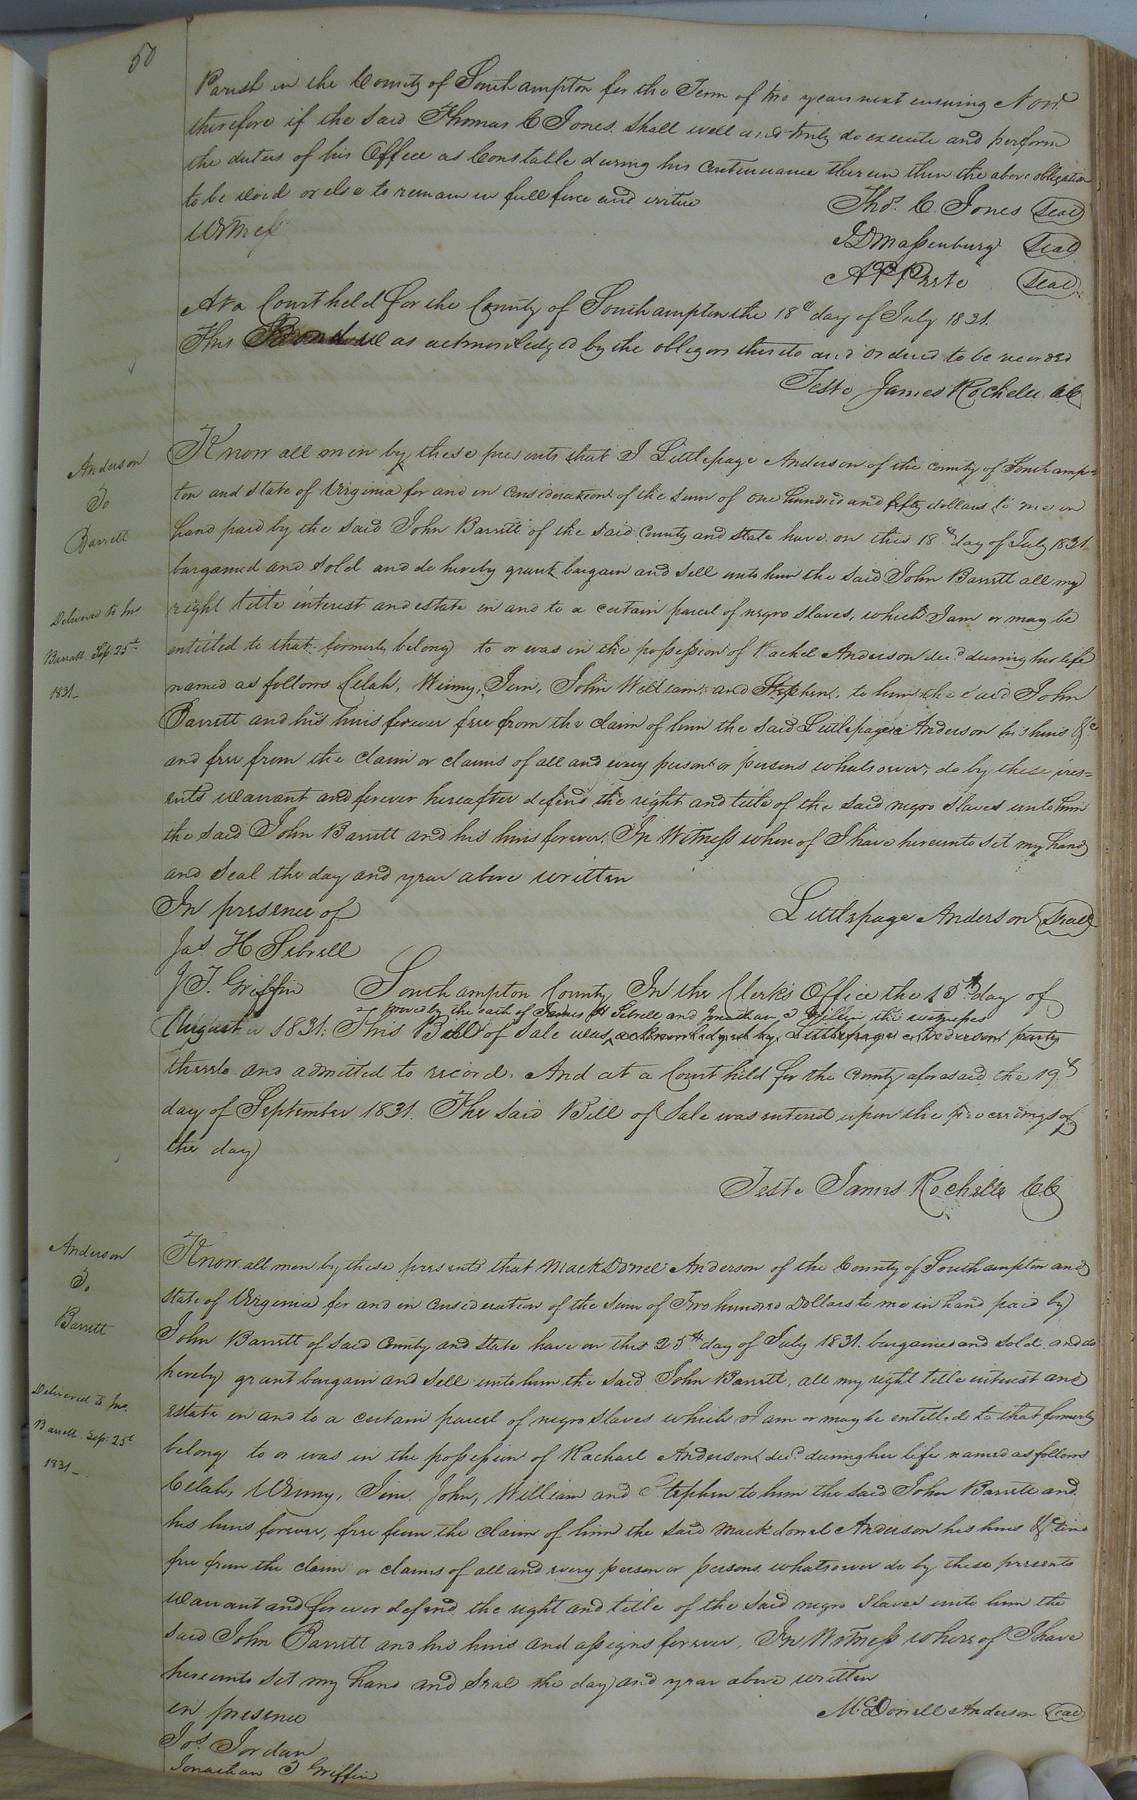 50
Parish in the County of Southampton for the Term of two years next ensuing Now
therefore if the said Thomas C Jones shall well and truly do execute and perform
the duties of his Office as Constable during his continuance therein then the above obligation
to be void or else to remain in full force and virtue
Thos. C. Jones Seal
Witness
J D Massenburg Seal
A P Peete Seal
At a Court held for the County of Southampton the 18th day of July 1831.
This Bond was acknowledged by the obligors thereto and ordered to be recorded
Teste James Rochelle CC
Anderson
To
Barrett
Delivered to Jno
Barrett Sep 25th
1831_
Know all men by these presents that I Littlepage Anderson of the County of Southamp=
ton and State of Virginia for and in consideration of the sum of one hundred and fifty dollars to me in
hand paid by the said John Barrett of the said County and State have on this 18th day of July 1831
bargained and sold and do hereby grant bargain and sell unto him the said John Barrett all my
right title interest and estate in and to a certain parcel of negro slaves, which I am or may be
entitled to that formerly belong to or was in the possession of Rachel Anderson decd during her life
named as follows Celah, Winny, Jim, John William and Stephen, to him the said John
Barrett and his heirs forever free from the claim of him the said Littlepage Anderson his heirs &c
and free from the claim or claims of all and every person or persons whatsoever, do by these pres=
ents warrant and forever hereafter defend the right and title of the said negro slaves unto him
the said John Barrett and his heirs forever. In Witness where of I have hereunto set my hand
and seal the day and year above written
In presence of
Littlepage Anderson Seal
Jas H Sebrell
J T. Griffin
Southampton County In the Clerks Office the 15th day of
proved by the oath of James H Sebrell and Jonathan T Griffin the witnesses
August 1831. This Bill of Sale was acknowledged by Littlepage Anderson party
thereto and admitted to record. And at a Court held for the County aforesaid the 19th
day of September 1831. The said Bill of Sale was entered upon the proceedings of
the day
Teste James Rochelle CC
Anderson
To
Barrett
Delivered to Jno.
Barrett Sep: 25th
1831_
Know all men by these presents that Mackdonel Anderson of the County of Southampton and
State of Virginia for and in consideration of the sum of Two hundred Dollars to me in hand paid by
John Barrett of said County and State have on this 25th day of July 1831. bargained and sold and do
hereby grant bargain and sell unto him the said John Barrett, all my right title interest and
estate in and to a certain parcel of negro slaves which I am or may be entitled to that formerly
belong to or was in the possession of Rachael Anderson decd during her life named as follows
Celah, Winny, Jim. John, William and Stephen to him the said John Barrett and
his heirs forever, free from the claim of him the said Mackdonel Anderson his heirs &c
free from the claim or claims of all and every person or persons whatsoever do by these presents
warrant and forever defend the right and title of the said negro slaves unto him the
said John Barrett and his heirs and assigns forever. In Witness where of I have
hereunto set my hand and seal the day and year above written
in presence
McDonell Anderson Seal
Jos. Jordan
Jonathan T Griffin